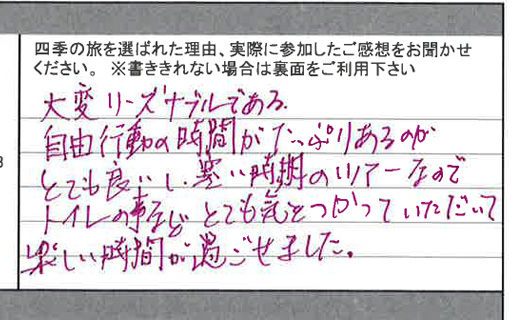 四季の旅を選ばれた理由、実際に参加したご感想をお聞かせ
ください。 ※書ききれない場合は裏面をご利用下さい
大変リーズナブルである。
自由行動の時間がたっぷりあるのが
とても良いし、寒い時期のツアーなので
トイレの事など とても気をつかっていただいて
楽しい時間が過ごせました。